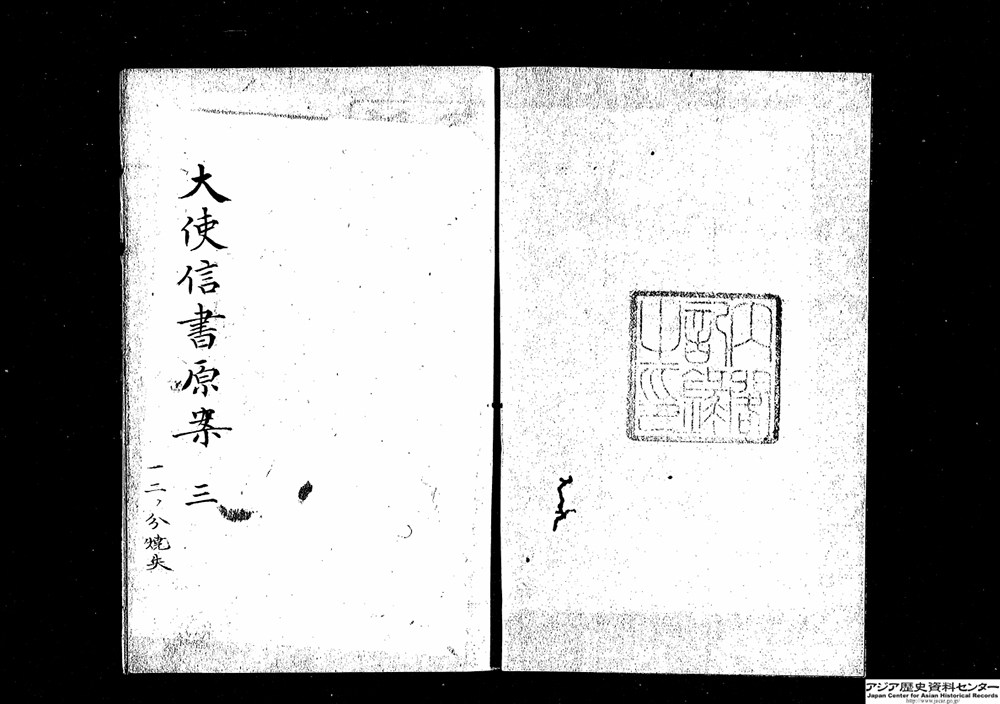 内閣
記録
之印
大使信書原案 三
一二ノ分燒失
アジア歴史資料センター
Japan Center for Asian Historical Records
http://www.jacar.go.jp/